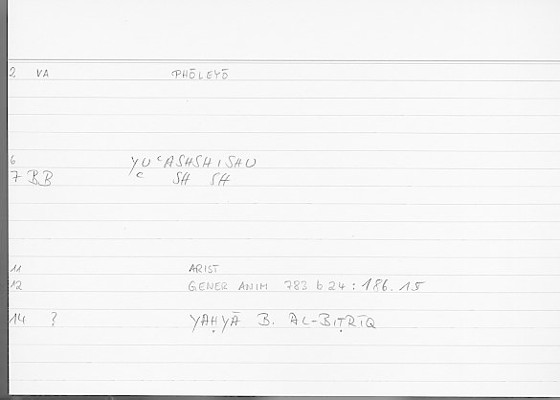 2 VA PHŌLEYŌ
6 YUᶜASHSHISHU
7 BB ᶜ SH SH
11 ARIST
12 GENER ANIM 783 b 24 : 186.15
14 ? YAḤYĀ B. AL-BIṬRĪQ